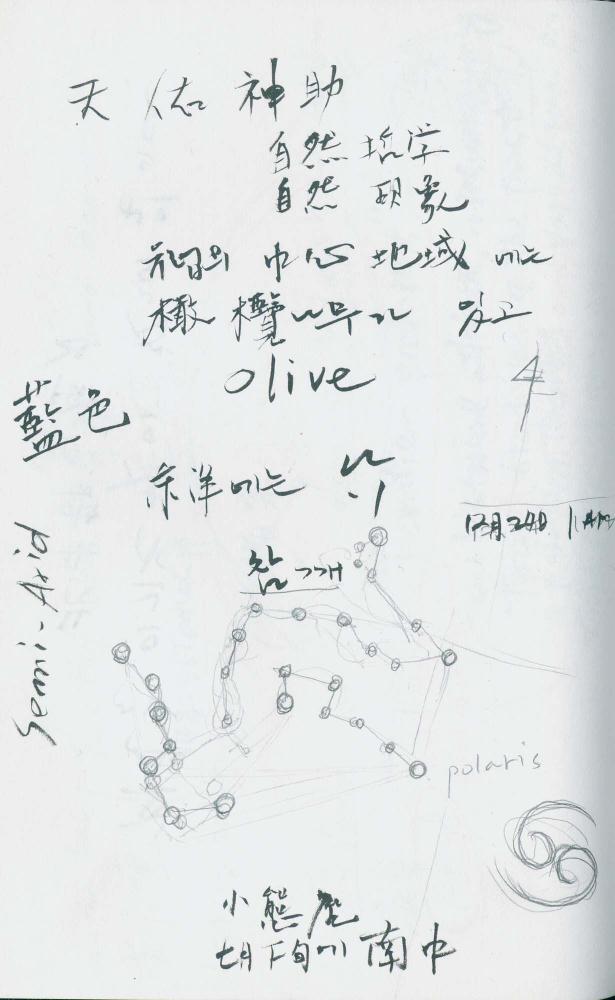 天佑神助
自然哲学
自然現象
中心地域에는
橄欖나무가 있고
olive
藍色
东洋에는
참깨
Semi-Arid
polaris
小熊座
七月下旬에 南中